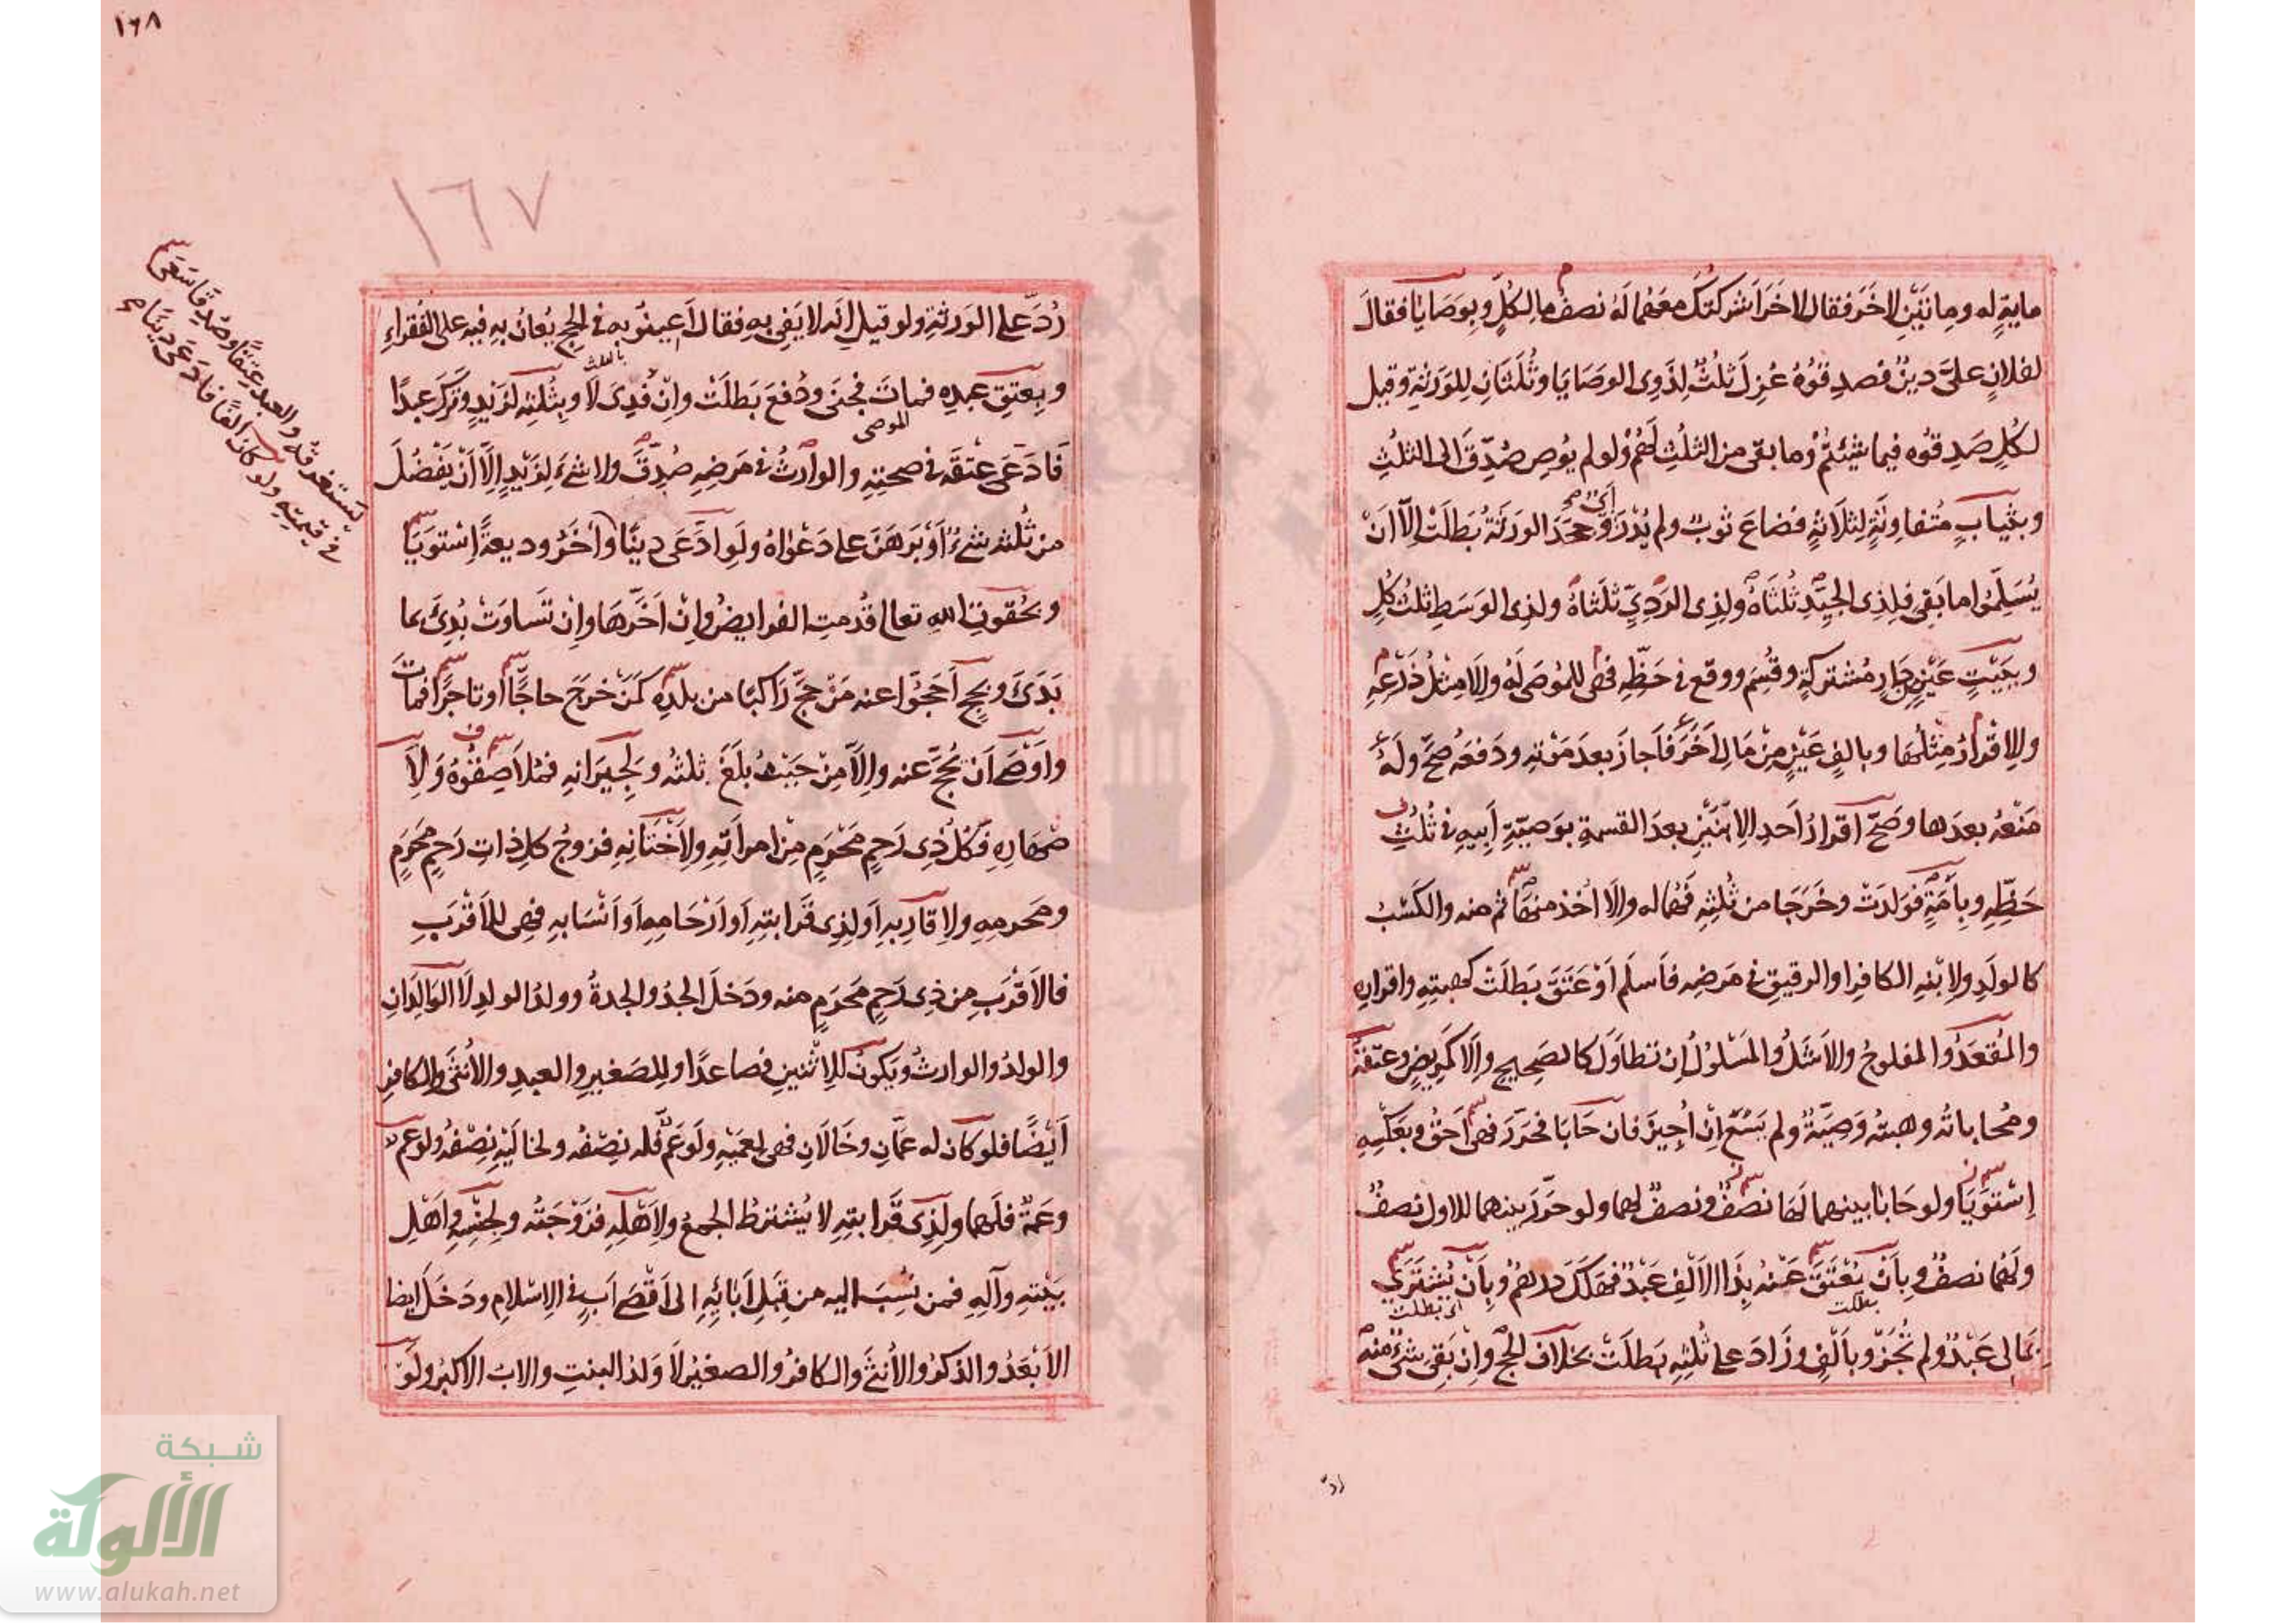 ماية له وماتين لاخر فقال لاخر اشركتك معهما له نصف ما لكل وبوصايا فقال
لفلان على دين فصدقوه عزل ثلث لذوى الوصايا وثلثان للورثة وقيل
لكل صدقوه فيما شئتم وما بقى من الثلث لهم ولو لم يوص صدق الى الثلث
وبثياب متفاوتة لثلاثة فضاع ثوب ولم يدر وجحد الورثة بطلت الا ان
يسلموا ما بقى فلذى الجيد ثلثاه ولذى الردي ثلثاه ولذى الوسط ثلث كل
وببيت عين من دار مشتركة وقسم ووقع فى حظه فهى للموصى له والا مثل ذرعه
والاقرار مثلها وبالف عين من مال اخر فاجاز بعد موته ودفعه صح وله
منعه بعدها وصح اقرار احد الابنين بعد القسمة بوصية ابيه فى ثلث
حظه وبامة فولدت وخرجا من ثلثه فهما له والا اخذ منها ثم منه والكسب
كالولد ولابنه الكافر او الرقيق فى مرضه فاسلم او عتق بطلت كهبته واقراره
والمقعد والمفلوج والاشل والمسلول ان تطاول كالصحيح والا كمريض وعتقه
ومحاباته وهبته وصية ولم يسع ان اجيز فان حابا فحرر فهى احق وبعكسه
استويا ولو حابا بينهما لها نصف ونصف لهما ولو حرر بينهما للاول نصف
ولهما نصف وبان يعتق عنه بذا الالف عبد فهلك درهم وبان يشترى
بطلت
اى بطلت
بمالى عبد ولم تجز وبالف وزاد على ثلثه بطلت بخلاف الحج وان بقى شئ منه
رد
١٦٨
١٦٧
رد على الورثة ولو قيل انه لا يفى به فقال اعينوا به فى الحج يعان به فيه على الفقراء
بالثلث
وبعتق عبده فمات فجنى ودفع بطلت وان فدى لا وبثلثه لزيد وترك عبدا
الموصى
فادعى عتقه فى صحته والوارث فى مرضه صدق ولا شئ لزيد الا ان يفضل
من ثلثه شئ او برهن على دعواه ولو ادعى دينا وآخر وديعة استويا
وبحقوق الله تعالى قدمت الفرايض وان اخرها وان تساوت بدئ بما
بدئ وبحج احجوا عنه من حج راكبا من بلده كمن خرج حاجا او تاجرا فمات
واوصى ان يحج عنه والا من حيث بلغ ثلثه ولجيرانه فملاصقوه ولا
صهاره فكل ذى رحم محرم من امراته ولاختانه فزوج كل ذات رحم محرم
ومحرمه ولاقاربه او لذى قرابته او ارحامه او انسابه فهى للاقرب
فالاقرب من ذى رحم محرم منه ودخل الجد والجدة وولد الولد لا الوالدان
والولد والوارث ويكون للاثنين فصاعدا وللصغير والعبد والانثى والكافر
ايضا فلو كان له عمان وخالان فهى لعميه ولو عم فله نصفه ولخاليه نصفه ولو عم
وعمة فلهما ولذى قرابته لا يشترط الجمع ولاهله فزوجته ولجنسه واهل
بيته وآله فمن نسب اليه من قبل آبائه الى اقصى اب فى الاسلام ودخل ايضا
الابعد والذكر والانثى والكافر والصغير لا ولد البنت والاب الاكبر ولو
يستغرقه والعبد عتقا وصدقا سعى
فى قيمته ولو كان الفا فادعى دينا صح
شبكة
الألوكة
www.alukah.net